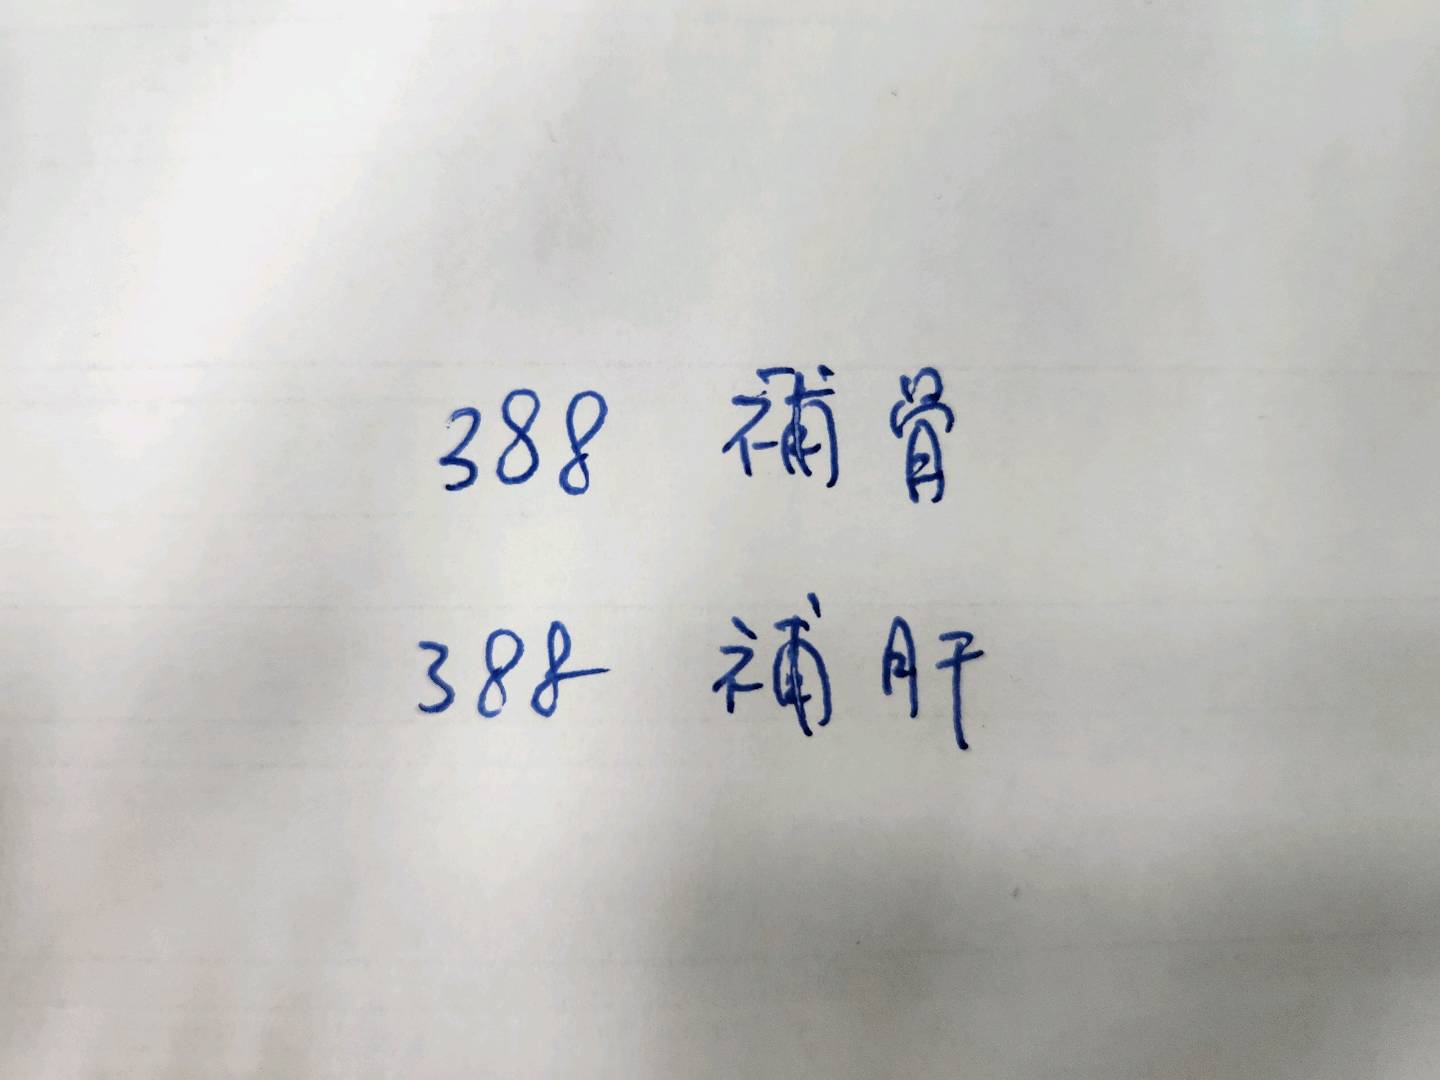 388 補骨
388 補肝